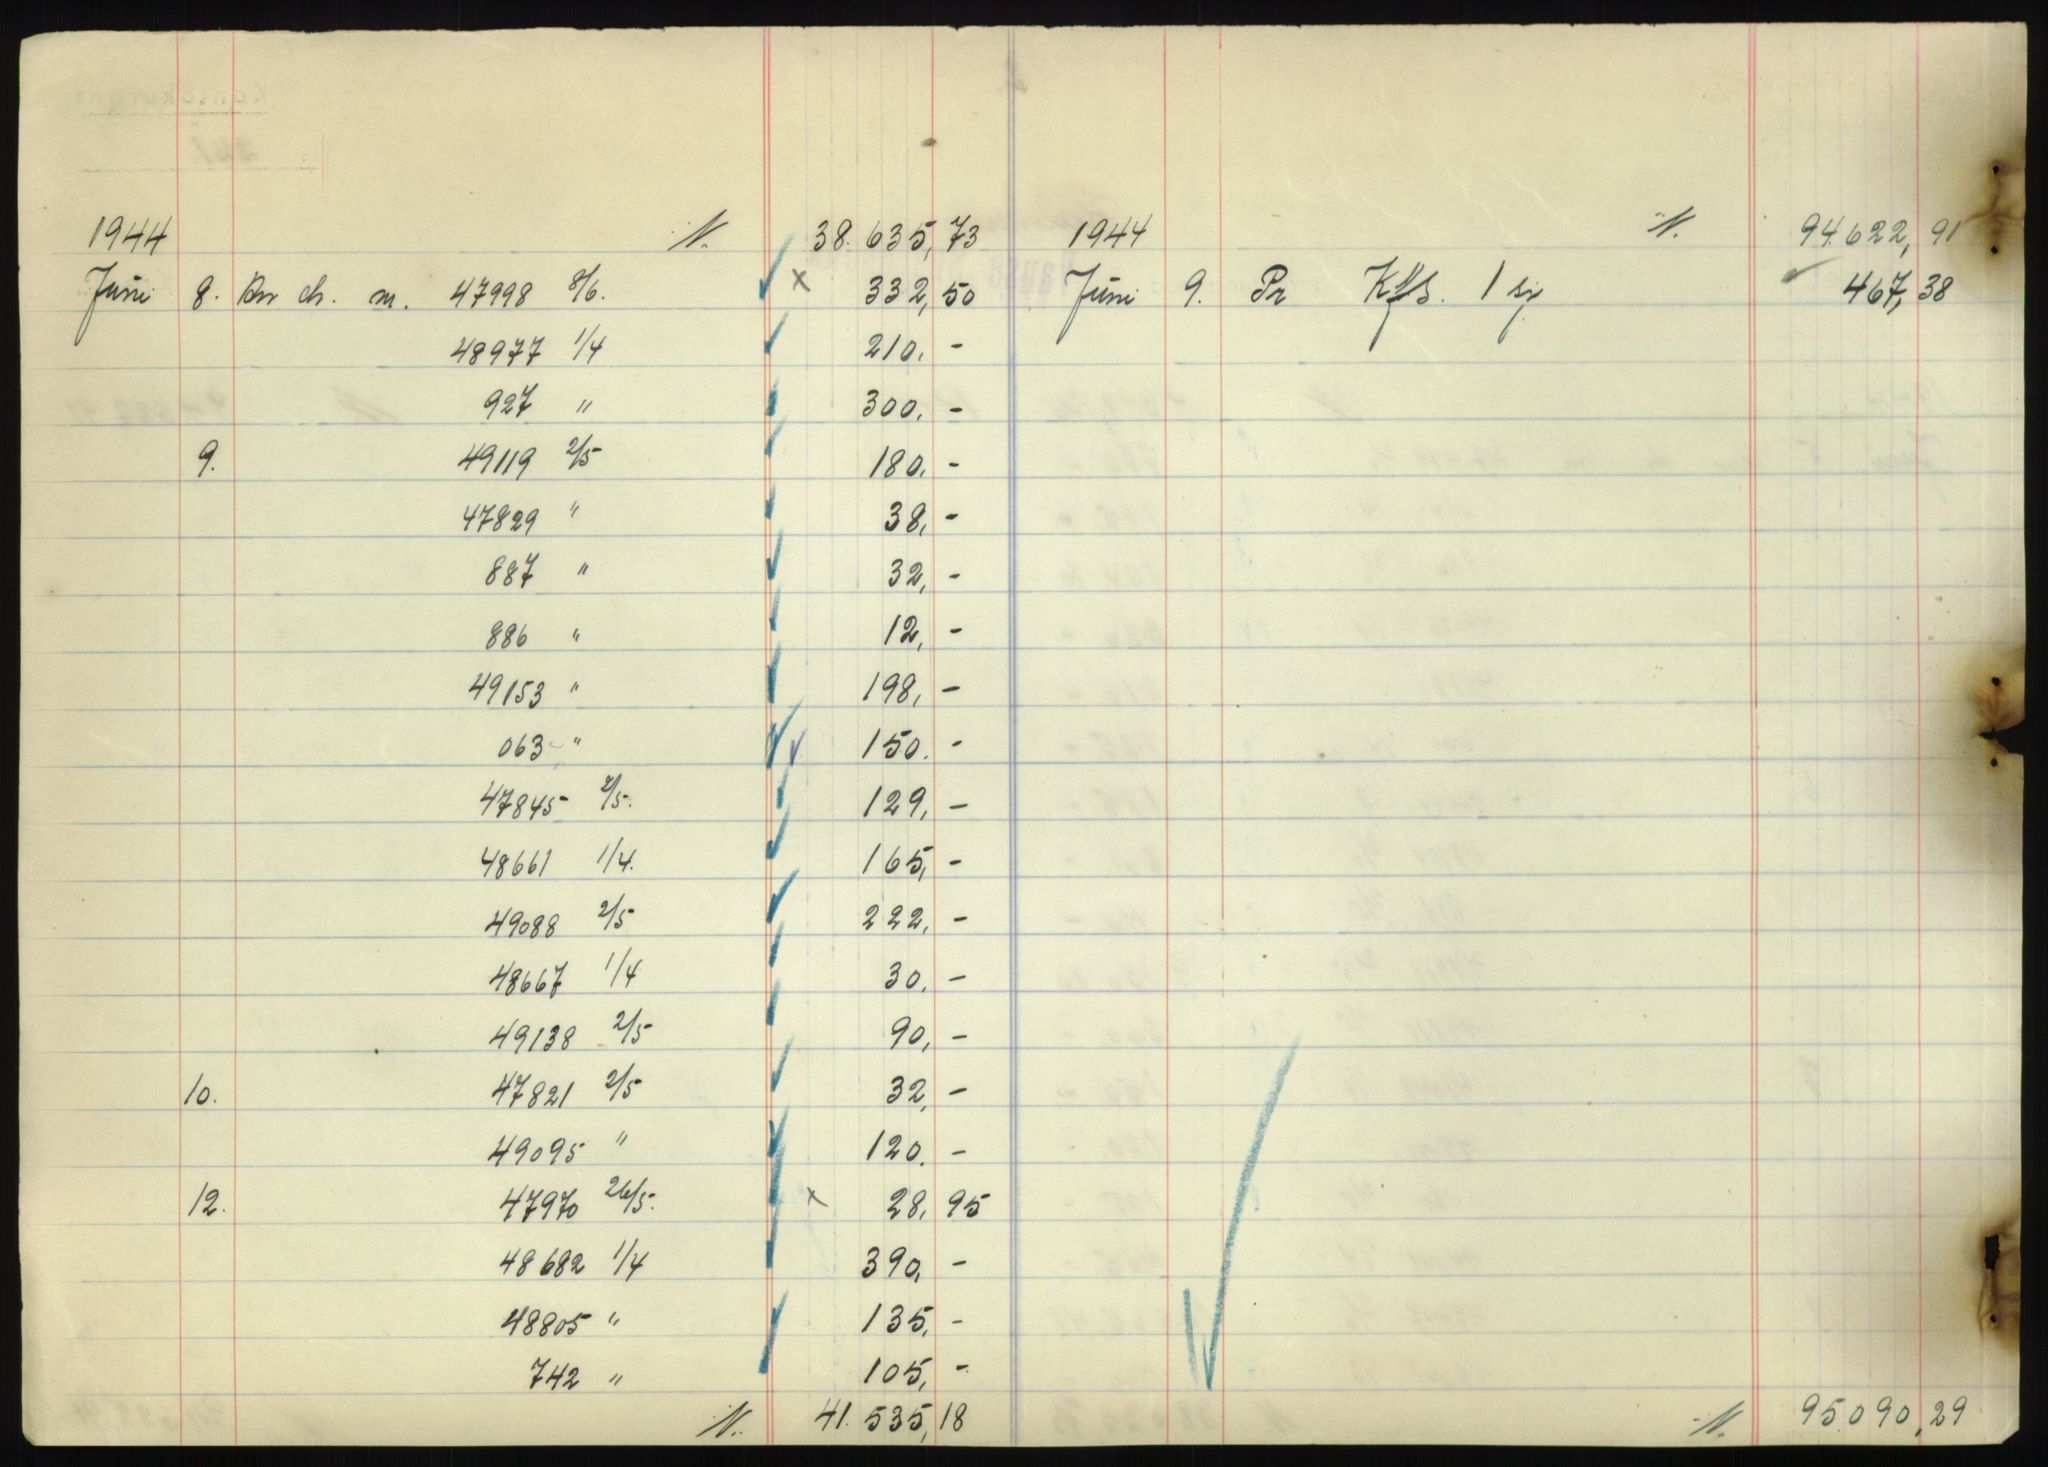 1944 N. 38.635,73
Juni 8. An ch. m. 47998 8/6. × 332,50
48977 1/4 210,-
927 " 300,-
9. 49119 2/5 180,-
47829 " 38,-
887 " 32,-
886 " 12,-
49153 " 198,-
063 " 150.-
47845 2/5. 129,-
48661 1/4. 165,-
49088 2/5 222,-
48667 1/4 30,-
49138 2/5 90,-
10. 47821 2/5 32,-
49095 " 120.-
12. 47970 26/5. × 28,95
48682 1/4 390,-
48805 " 135,-
742 " 105,-
N. 41.535,18
1944 N. 94.622,91
Juni 9. Pr 467,38
N. 95.090,29